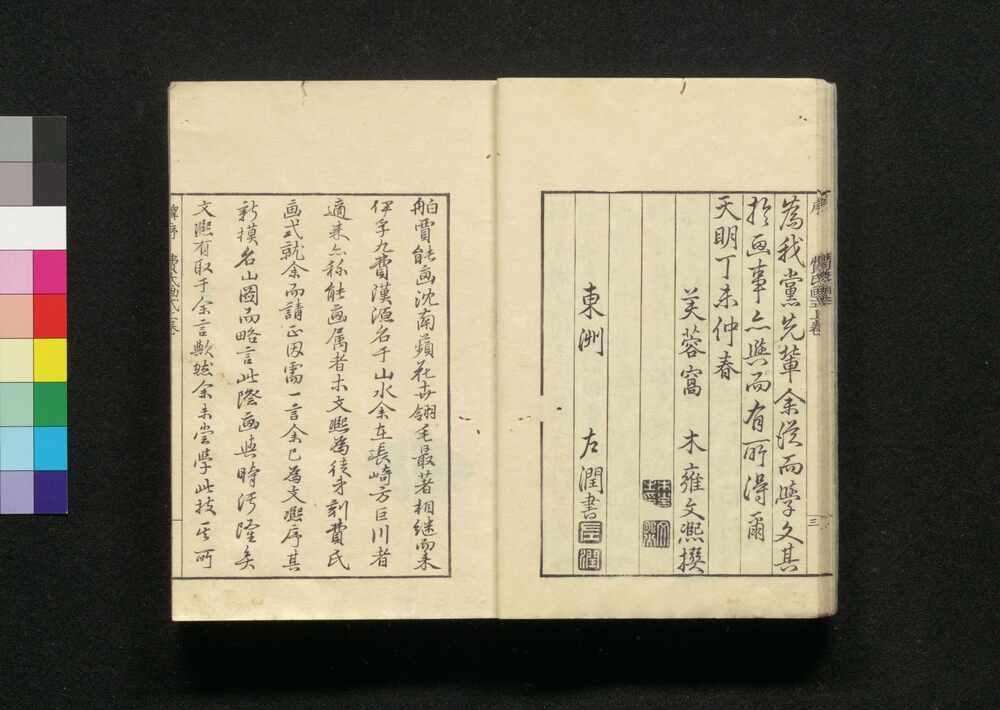 為我黨先輩余従而學文其
於画事亦與而有所得爾
天明丁未仲春
芙蓉窩 木雍文熈撰
東洲 左潤書
舶賈能画沈南蘋花卉翎毛最著相継而来
伊孚九費漢源名于山水余在長崎方巨川者
適来亦称能画属者木文熈為徒弟刻費氏
画式就余而請正因需一言余已為文熈序其
新模名山圖而略言此際画與時汚隆矣
文熈有取于余言歟然余未嘗学此技其所